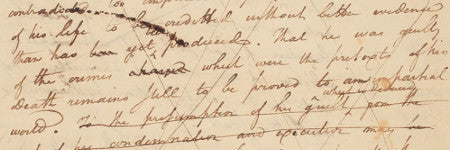 contradicted too
of his life to be credited without better evidence
than has been yet produced. That he was guilty
of the crimes charged which were the pretexts of his
Death remains still to be proved to an impartial
what is deducing
world. To the presumption of his guilt, from the
of his condemnation and execution may be